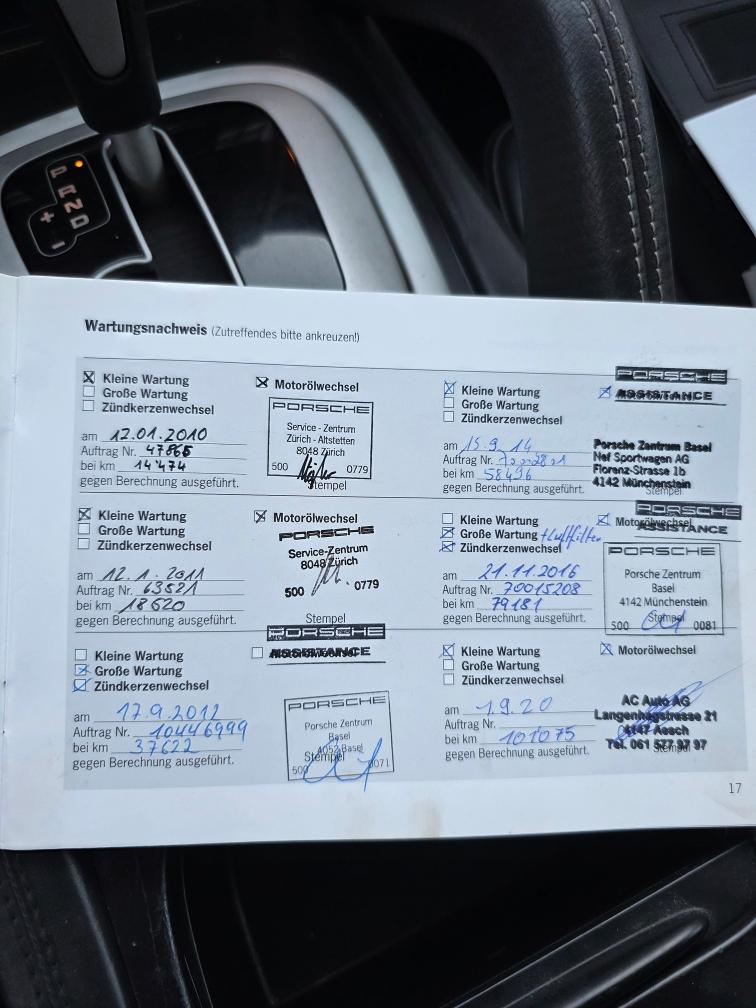 P
R
N
D
+
−
Wartungsnachweis (Zutreffendes bitte ankreuzen!)
Kleine Wartung
Große Wartung
Zündkerzenwechsel
am 12.01.2010
Auftrag Nr. 47865
bei km 14'474
gegen Berechnung ausgeführt.
Motorölwechsel
PORSCHE
Service - Zentrum
Zürich - Altstetten
8048 Zürich
500 0779
Stempel
Kleine Wartung
Große Wartung
Zündkerzenwechsel
am 12.1.2011
Auftrag Nr. 63521
bei km 18620
gegen Berechnung ausgeführt.
Motorölwechsel
PORSCHE
Service-Zentrum
8048 Zürich
500 0779
Stempel
Kleine Wartung
Große Wartung
Zündkerzenwechsel
am 17.9.2012
Auftrag Nr. 10446999
bei km 37622
gegen Berechnung ausgeführt.
PORSCHE
ASSISTANCE
PORSCHE
Porsche Zentrum
Basel
4052 Basel
Stempel
500 0071
Kleine Wartung
Große Wartung
Zündkerzenwechsel
am 15.9.14
Auftrag Nr.
bei km 58496
gegen Berechnung ausgeführt.
PORSCHE
ASSISTANCE
Porsche Zentrum Basel
Nef Sportwagen AG
Florenz-Strasse 1b
4142 Münchenstein
Stempel
Kleine Wartung
Große Wartung +Luftfilter
Zündkerzenwechsel
am 21.11.2016
Auftrag Nr. 70015208
bei km 79181
gegen Berechnung ausgeführt.
PORSCHE
Motorölwechsel
ASSISTANCE
PORSCHE
Porsche Zentrum
Basel
4142 Münchenstein
Stempel
500 0081
Kleine Wartung
Große Wartung
Zündkerzenwechsel
am 1.9.20
Auftrag Nr.
bei km 101075
gegen Berechnung ausgeführt.
Motorölwechsel
AC Auto AG
Langenhagstrasse 21
4147 Aesch
Tel. 061 577 97 97
Stempel
17